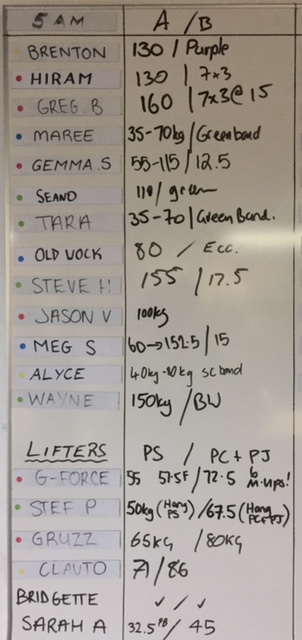 5 AM A / B
BRENTON 130 / Purple
HIRAM 130 / 7x3
GREG. B 160 / 7x3@ 15
MAREE 35-70kg / Greenband
GEMMA.S 55-115 / 12.5
SEANO 110 / green
TARA 35-70 / Green Band.
OLD VOCK 80 / Ecc.
STEVE H 155 / 17.5
JASON V 100kg
MEG S 60→152.5 / 15
ALYCE 40kg-80kg sc band
WAYNE 150kg / BW
LIFTERS PS / PC + PJ
G-FORCE 55 57.5F / 72.5 6 M-ups!
STEF P 50kg (Hang PS) / 67.5 (Hang PC+PJ)
GRUZZ 65KG / 80KG
CLAUTO 71 / 86
BRIDGETTE ✓ / ✓
SARAH A 32.5 PB / 45